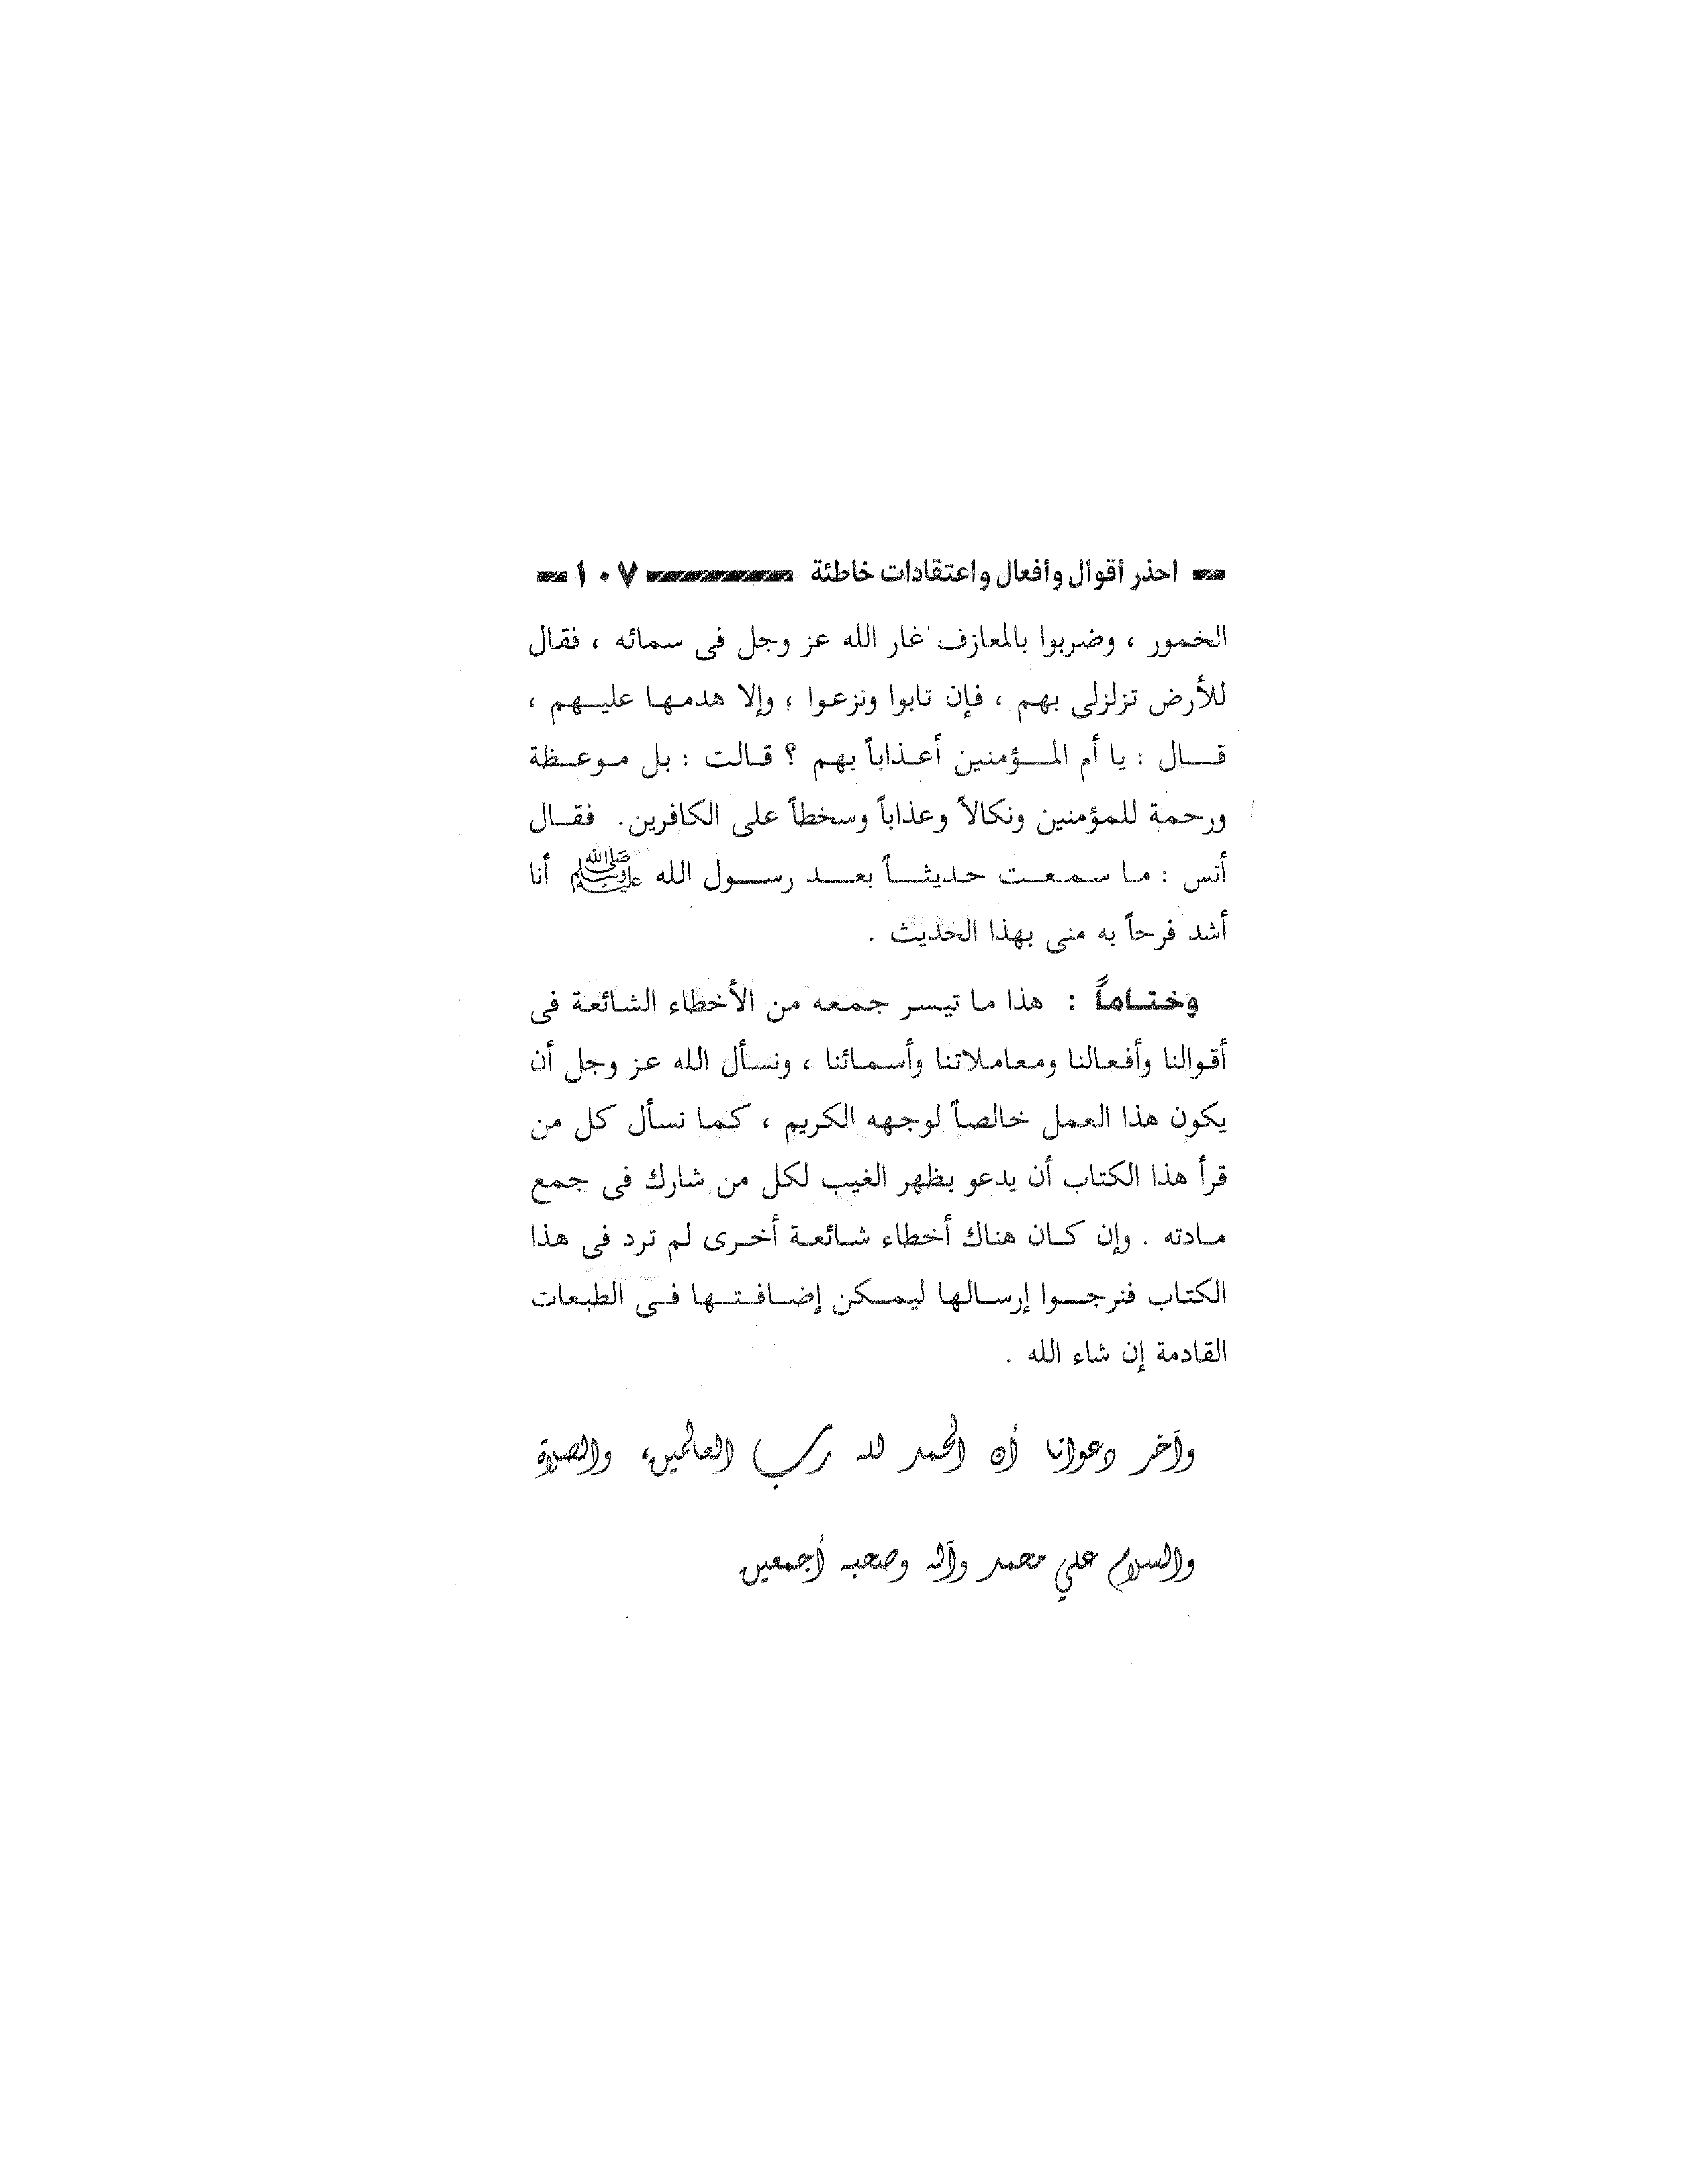 احذر أقوال وأفعال واعتقادات خاطئة ١٠٧
الخمور ، وضربوا بالمعازف غار الله عز وجل فى سمائه ، فقال
للأرض تزلزلى بهم ، فإن تابوا ونزعوا ؛ وإلا هدمها عليهم ،
قال : يا أم المؤمنين أعذاباً بهم ؟ قالت : بل موعظة
ورحمة للمؤمنين ونكالاً وعذاباً وسخطاً على الكافرين. فقال
أنس : ما سمعت حديثاً بعد رسول الله ﷺ أنا
أشد فرحاً به منى بهذا الحديث .
وختاماً : هذا ما تيسر جمعه من الأخطاء الشائعة فى
أقوالنا وأفعالنا ومعاملاتنا وأسمائنا ، ونسأل الله عز وجل أن
يكون هذا العمل خالصاً لوجهه الكريم ، كما نسأل كل من
قرأ هذا الكتاب أن يدعو بظهر الغيب لكل من شارك فى جمع
مادته . وإن كان هناك أخطاء شائعة أخرى لم ترد فى هذا
الكتاب فنرجوا إرسالها ليمكن إضافتها فى الطبعات
القادمة إن شاء الله .
وآخر دعوانا أن الحمد لله رب العالمين، والصلاة
والسلام علي محمد وآله وصحبه أجمعين